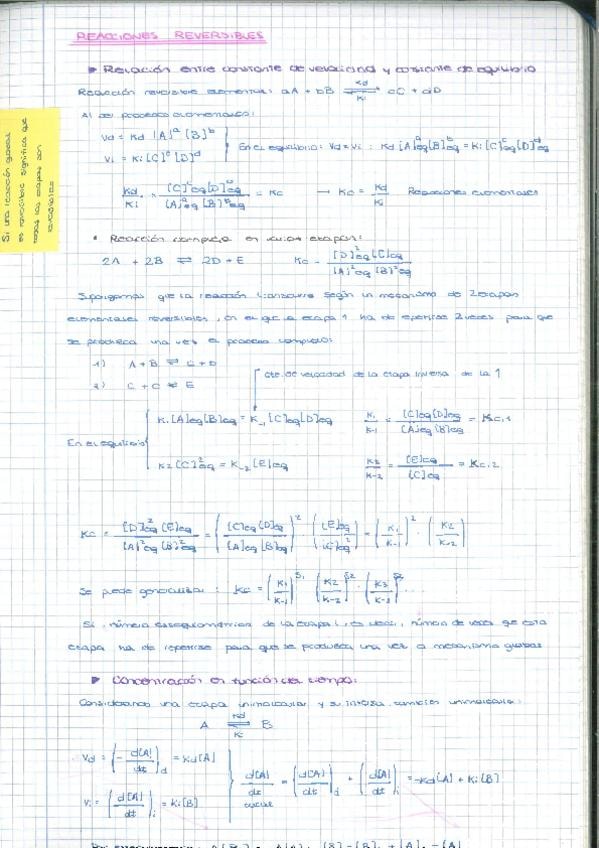 REACCIONES REVERSIBLES
▸ Relación entre constante de velocidad y constante de equilibrio
Reacción reversible elemental: aA + bB ⇌ cC + dD
Kd
Ki
Al ser procesos elementales:
Vd = Kd [A]^a [B]^b
Vi = Ki [C]^c [D]^d
En el equilibrio: Vd = Vi : Kd [A]^a eq [B]^b eq = Ki [C]^c eq [D]^d eq
Kd/Ki = [C]^c eq [D]^d eq / [A]^a eq [B]^b eq = Kc → Kc = Kd/Ki Reacciones elementales
Si una reacción global
es reversible significa que
todas las etapas son
reversibles
• Reacción compleja en varias etapas:
2A + 2B ⇌ 2D + E Kc = [D]²eq [E]eq / [A]²eq [B]²eq
Supongamos que la reacción transcurre según un mecanismo de 2 etapas
elementales reversibles, en el que la etapa 1 ha de repetirse 2 veces para que
se produzca una vez el proceso completo:
1) A + B ⇌ C + D
2) C + C ⇌ E
cte. de velocidad de la etapa inversa de la 1
K₁ [A]eq [B]eq = K₋₁ [C]eq [D]eq K₁/K₋₁ = [C]eq [D]eq / [A]eq [B]eq = Kc,1
En el equilibrio
K₂ [C]²eq = K₋₂ [E]eq K₂/K₋₂ = [E]eq / [C]eq = Kc,2
Kc = [D]²eq [E]eq / [A]²eq [B]²eq = ([C]eq [D]eq / [A]eq [B]eq)² · ([E]eq / [C]eq²) = (K₁/K₋₁)² · (K₂/K₋₂)
Se puede generalizar : Kc = (K₁/K₋₁)^S₁ · (K₂/K₋₂)^S₂ · (K₃/K₋₃)^S₃ ...
Si, número estequiométrico de la etapa i, es decir, número de veces que esta
etapa ha de repetirse para que se produzca una vez el mecanismo global
▸ Concentración en función del tiempo:
Considerando una etapa unimolecular y su inversa también unimolecular:
A ⇌ B
Kd
Ki
Vd = (- d[A]/dt)d = Kd [A]
Vi = (d[A]/dt)i = Ki [B]
d[A]/dt = (d[A]/dt)d + (d[A]/dt)i = -Kd [A] + Ki [B]